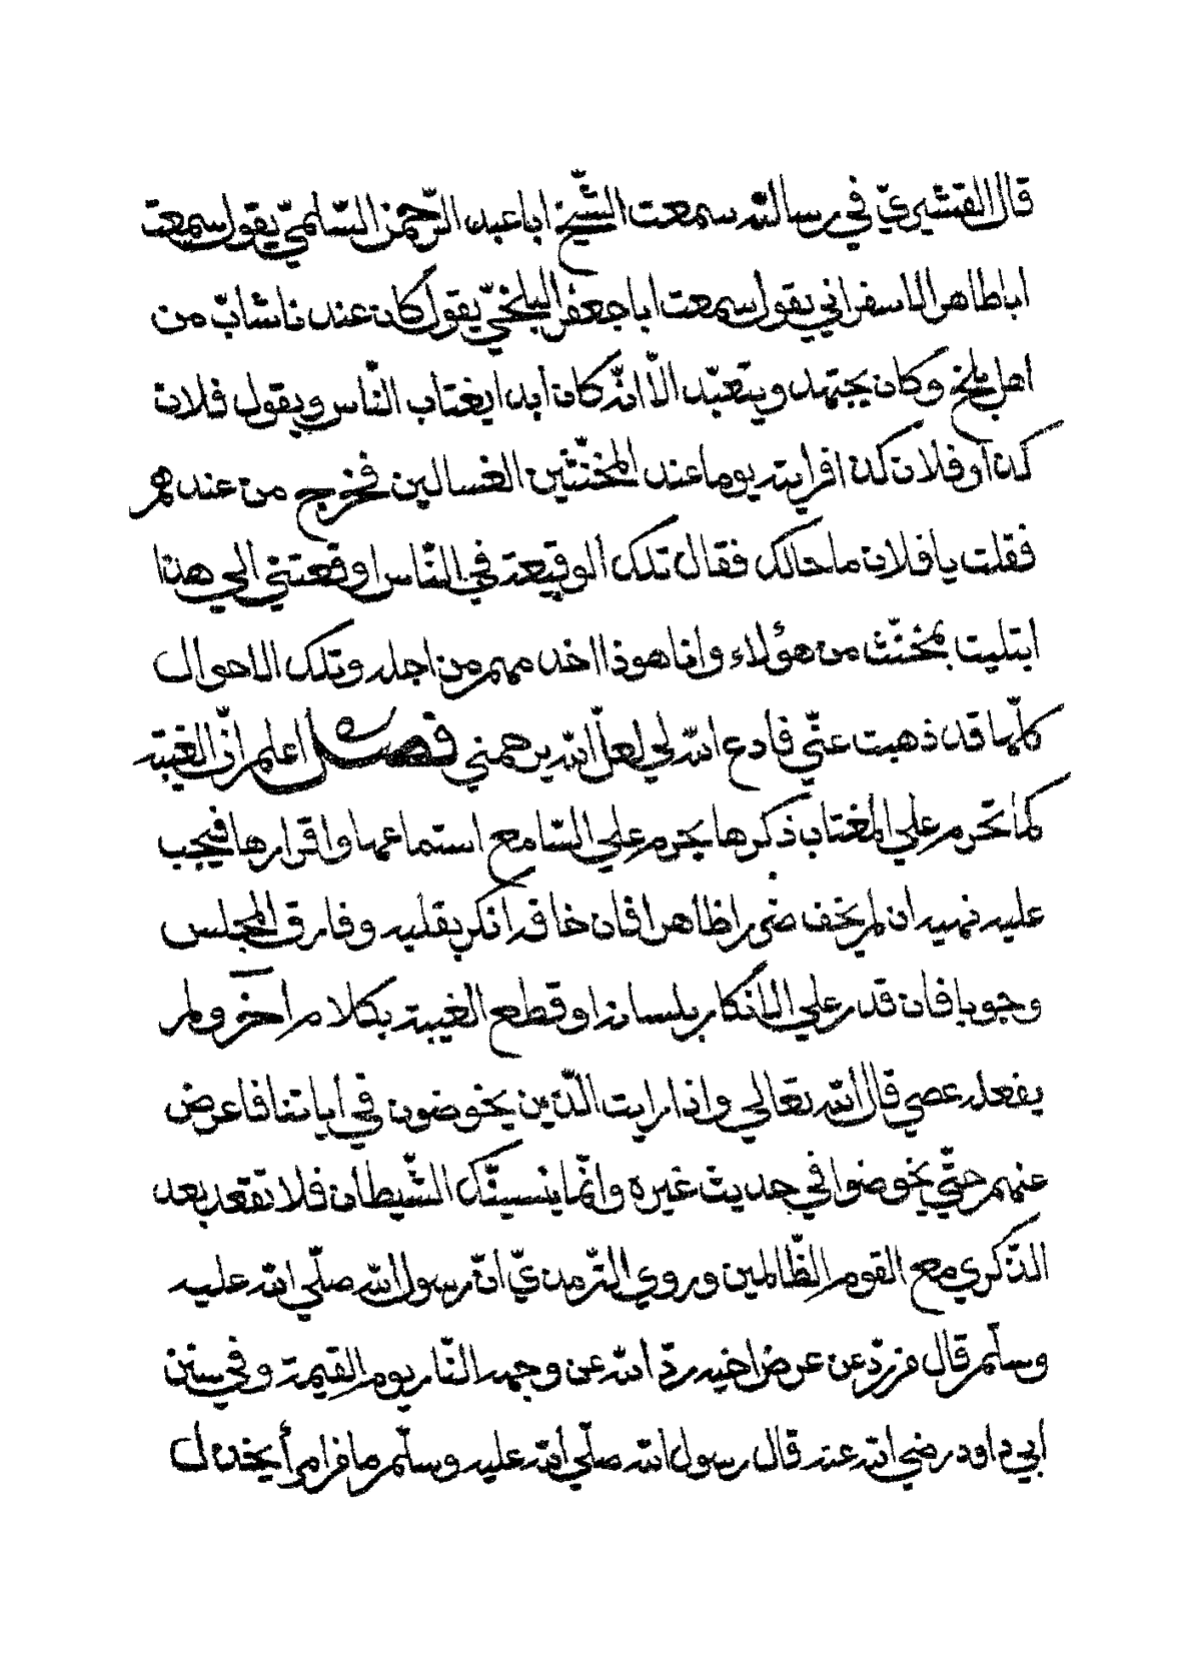 قال القشيريّ في رسالته سمعت الشّيخ ابا عبد الرّحمن السّلميّ يقول سمعت
ابا طاهر الاسفراني يقول سمعت ابا جعفر البلخيّ يقول كان عندنا شابّ من
اهل بلخ وكان يجتهد ويتعبّد الّا انّه كان أبدا يغتاب النّاس ويقول فلان
كذا وفلان كذا فرايته يوما عند المخنّثين الغسالين فخرج من عندهم
فقلت يا فلان ما حالك فقال تلك الوقيعة في النّاس اوقعتني الي هذا
ابتليت بمخنّث من هؤلاء وانا هوذا اخدمهم من اجله وتلك الاحوال
كلّها قد ذهبت عنّي فادع الله لي لعلّ الله يرحمني فصل اعلم انّ الغيبة
كما تحرم علي المغتاب ذكرها يحرم علي السّامع استماعها واقرارها فيجب
عليه نهيه ان لم يخف ضررا ظاهرا فان خافه انكر بقلبه وفارق المجلس
وجوبا فان قدر علي الانكار بلسانه او قطع الغيبة بكلام آخر ولم
يفعله عصي قال الله تعالي واذا رايت الّذين يخوضون في أياتنا فاعرض
عنهم حتّي يخوضوا في حديث غيره وانّما ينسينّك الشّيطان فلا تقعد بعد
الذّكري مع القوم الظّالمين وروي التّرمذيّ انّ رسول الله صلّي الله عليه
وسلّم قال من ردّ عن عرض اخيه ردّ الله عن وجهه النّار يوم القيمة وفي سنن
ابي داود رضي الله عنه قال رسول الله صلّي الله عليه وسلّم ما من امرأ يخذل